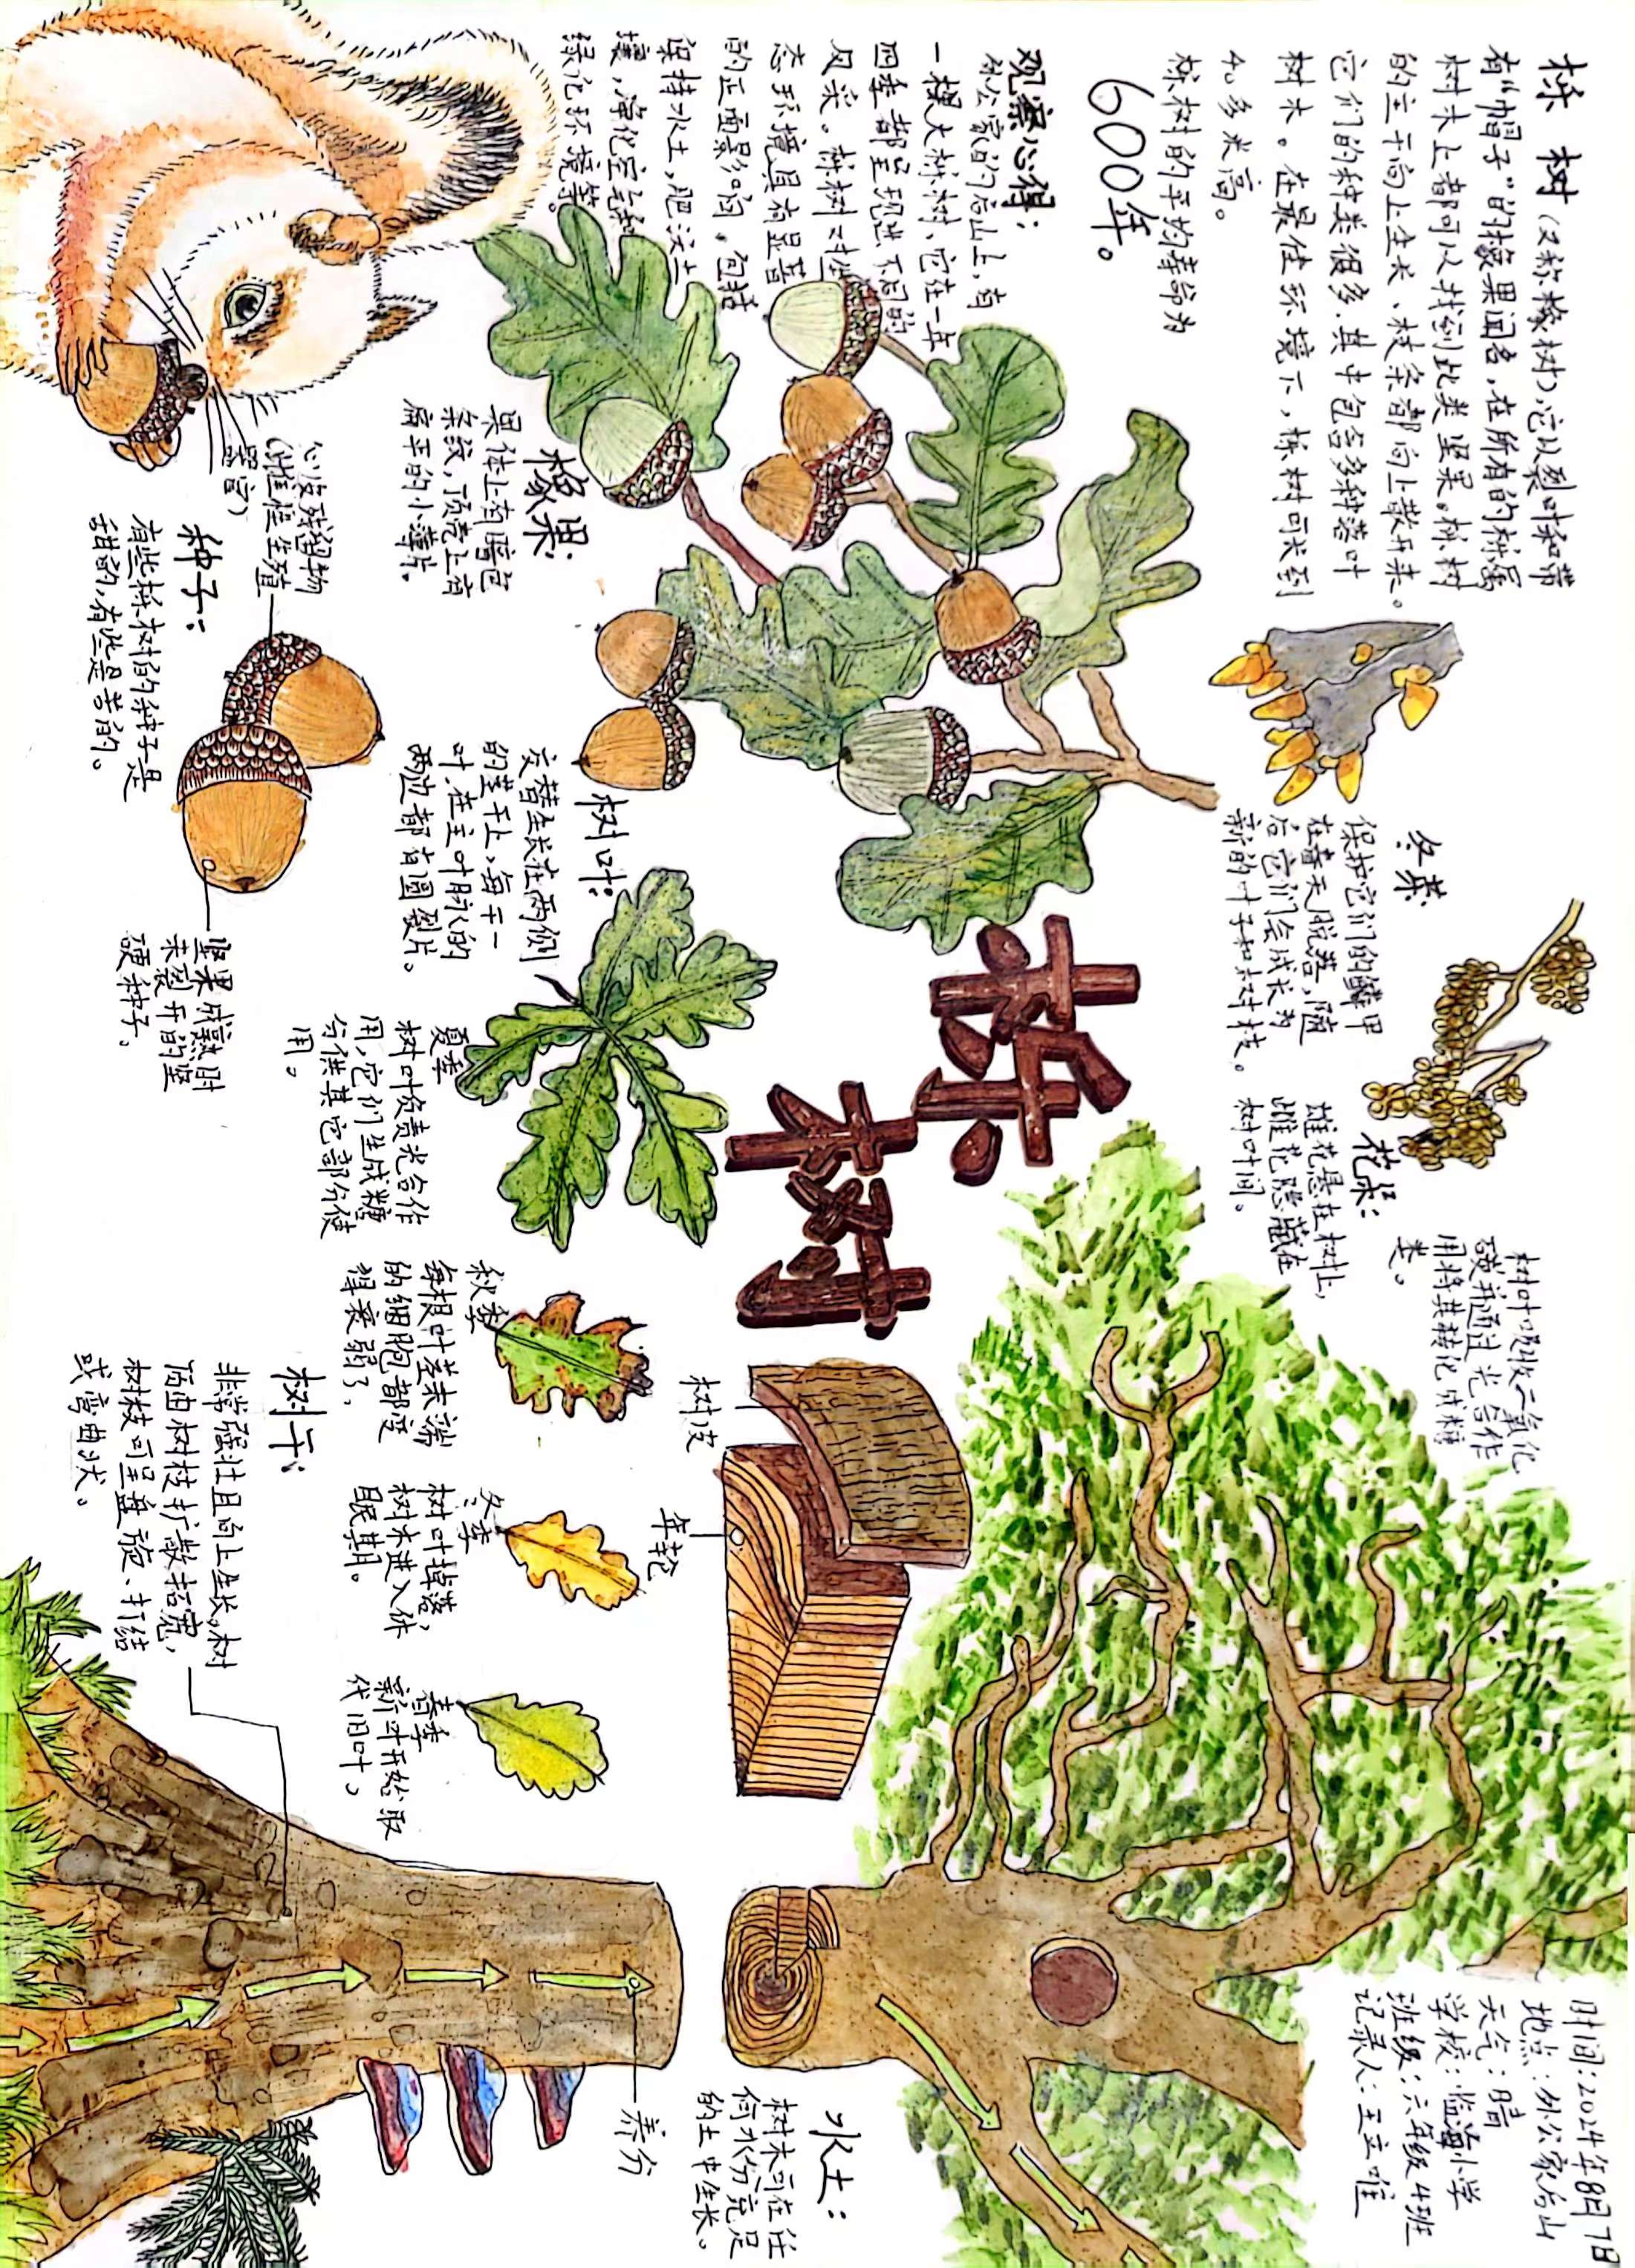 栎树(又称橡树),它以裂叶和带
有“帽子”的橡果闻名,在所有的栎属
树木上都可以找到此类坚果。栎树
的主干向上生长,枝条都向上散开来。
它们的种类很多,其中包含多种落叶
树木。在最佳环境下,栎树可长到
40多米高。
栎树的平均寿命为
600年。
观察心得:
外公家的后山上,有
一棵大栎树,它在一年
四季都呈现进不同的
风采。栎树对生
态环境具有显著
的正面影响,包括
保持水土,肥沃土
壤,净化空气和
绿化环境等。
冬芽:
保护它们的鳞甲
在春天脱落,随
后它们会成长为
新的叶子和树枝。
花朵:
雄花悬在树上,
雌花隐藏在
树叶间。
树叶吸收二氧化
碳并通过光合作
用将其转化成糖
类。
时间:2024年8月7日
地点:外公家后山
天气:晴
学校:临海小学
班级:六年级4班
记录人:王立唯
栎
树
橡果:
果体上有暗色
条纹,顶壳上有
扁平的小薄片。
树叶:
交替生长在两侧
的茎干上,每干一
叶,在主叶脉的
两边都有圆裂片。
夏季
树叶负责光合作
用,它们生成糖
分供其它部分使
用。
秋季
每根叶茎末端
的细胞都变
得衰弱了,
冬季
树叶掉落,
树木进入休
眠期。
春季
新叶开始取
代旧叶。
树皮
年轮
水土:
树木可在任
何水分充足
的土中生长。
养分
心皮残留物
(雌性生殖
器官)
种子:
有些栎树的种子是
甜的,有些是苦的。
坚果成熟时
未裂开的坚
硬种子。
树干:
非常强壮且向上生长,树
冠由树枝扩散拓宽,
树枝可呈盘旋、打结
或弯曲状。